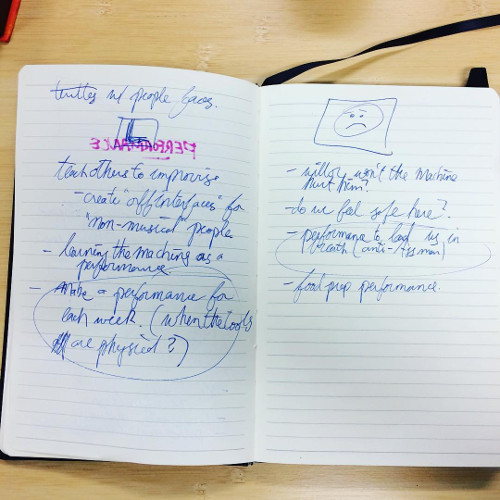 turtles w/ people faces.
PERFORMAKE
teach others to improvise
- create "off interfaces" for
"non-musical" people
- learning the machine as a
performance
- Make a performance for
each week. (when the tools
are physical?)
- willow won't the machine
hurt him?
- do we feel safe here?
- performance to lead us in
breath (anti-
- food prep performance.